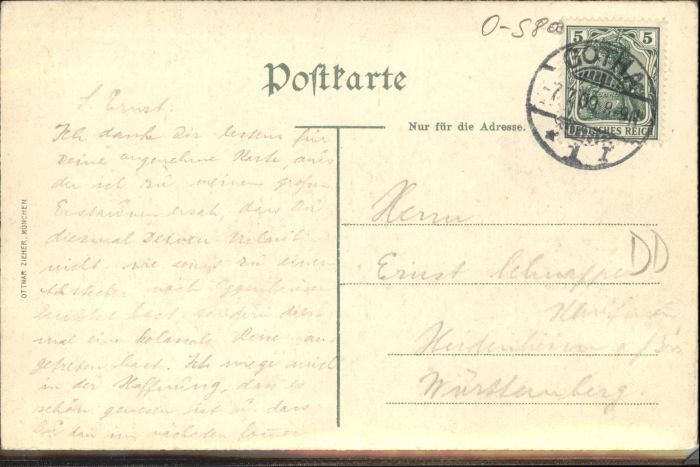 O-58
Postkarte
Nur für die Adresse.
GOTHA
5 5
DEUTSCHES REICH
OTTMAR ZIEHER, MÜNCHEN
L. Ernst.
Ich danke Dir bestens für
Deine angenehme Karte, aus
der ich zu meinem großen
Erstaunen ersah, dass Du
diesmal Deinen Urlaub
nicht wie sonst zu einem
Abstecher nach
hast, sondern dies
mal eine kolossale Reise an
getreten hast. Ich wiege mich
in der Hoffnung, dass es
schön gewesen ist u. dass
Du dann im nächsten
Herrn
Ernst
Heidenheim a/Brz
Württemberg.
DD